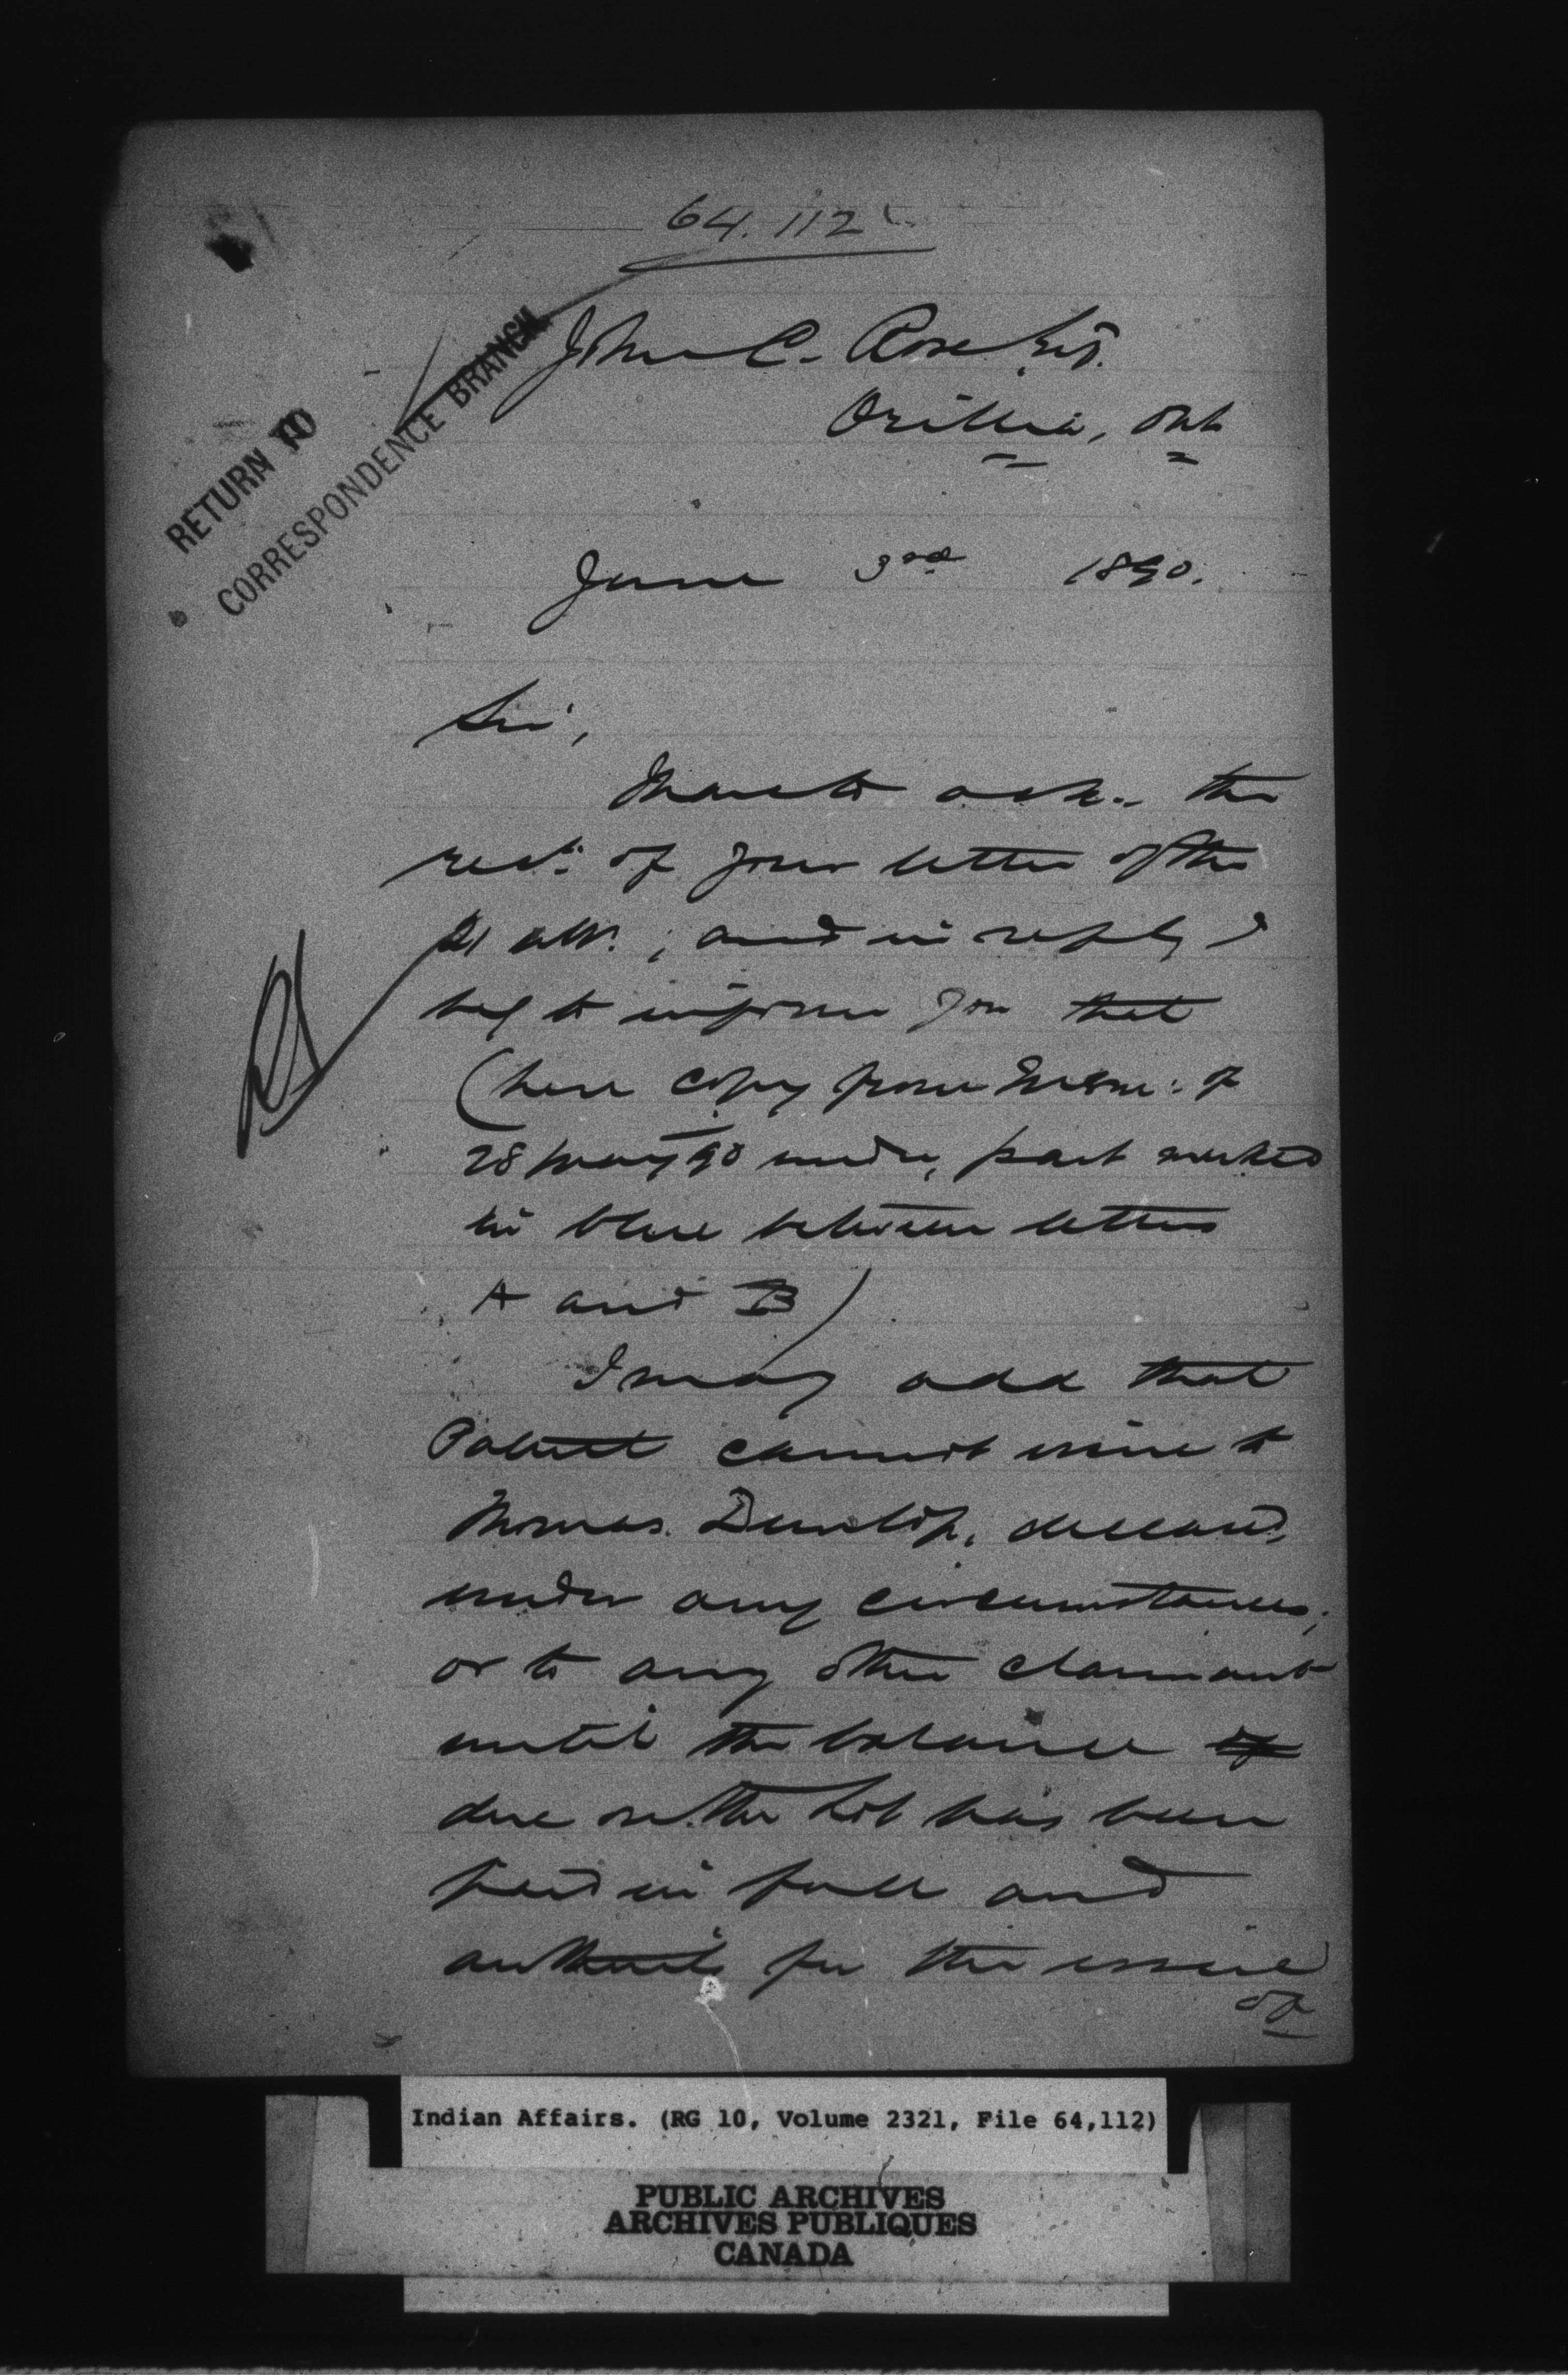 64.112
RETURN TO
CORRESPONDENCE BRANCH.
John C. Rose Esq.
Orillia, Ont
June 3rd 1890.
Sir,
I have to ack. the
rect. of your letter of the
21 ult. ; and in reply I
beg to inform you that
(here copy from Mem: of
28 May 90 under, part marked
in blue between letters
A and B)
I may add that
Patent cannot issue to
Thomas Dunlop, deceased,
under any circumstances,
or to any other claimant
until the balance of
due on the Lot has been
paid in full and
authority for the issue
of
Indian Affairs. (RG 10, Volume 2321, File 64,112)
PUBLIC ARCHIVES
ARCHIVES PUBLIQUES
CANADA